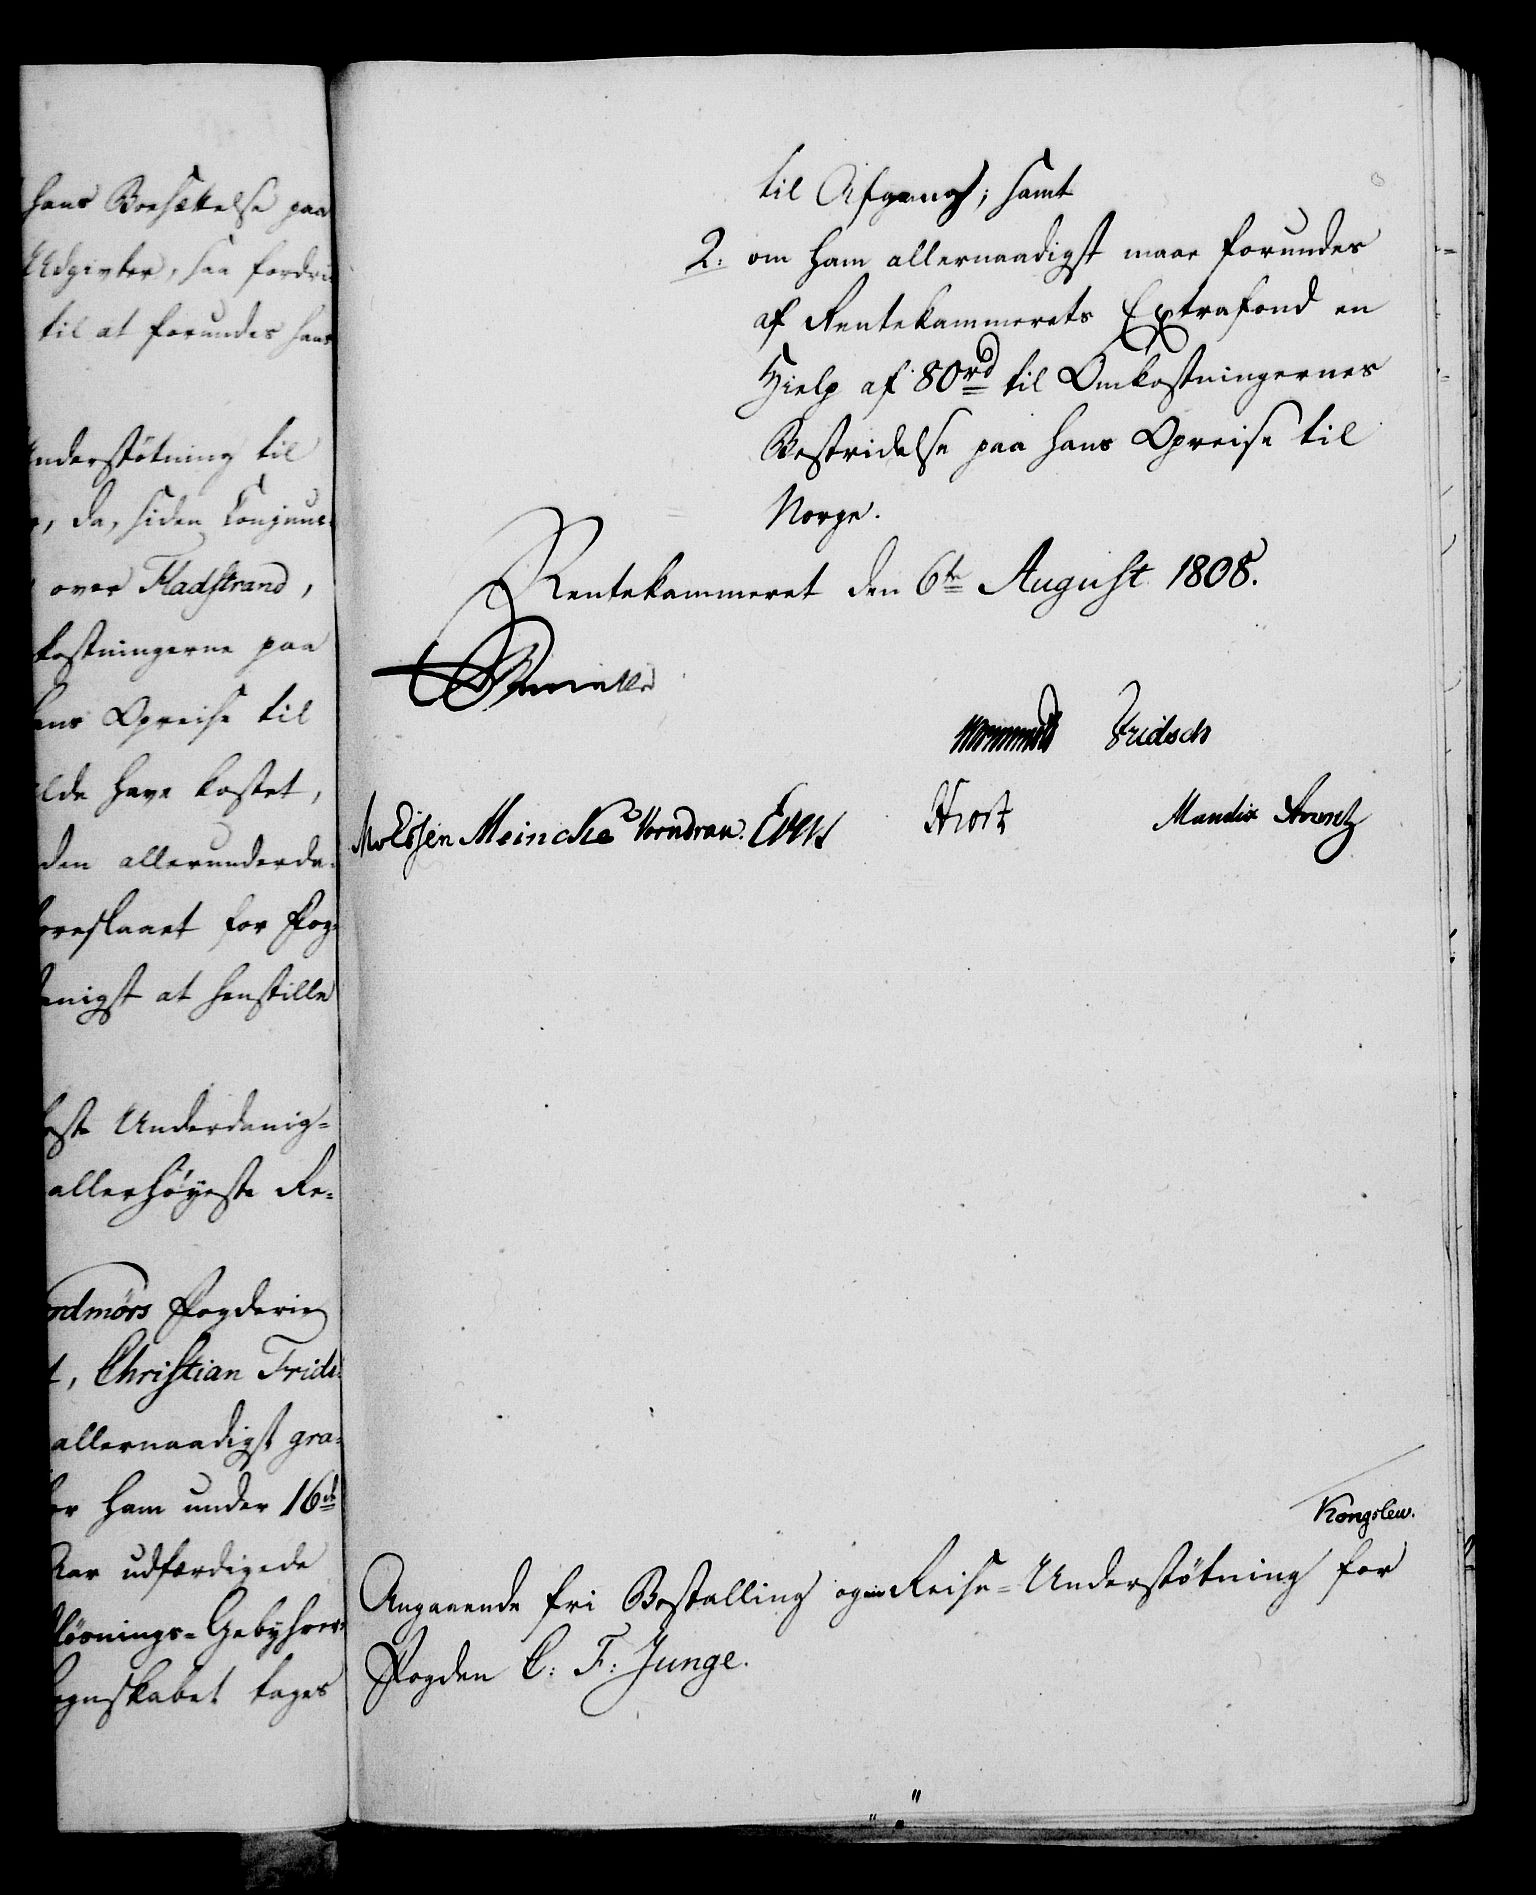 hans Bosættelse paa
Udgivter, saa fordri-
til at forundes ham
Understøtning til
da, siden Conjunc-
over Fladstrand,
kostningerne paa
hans Opreise til
have kostet,
den allerunderda-
foreslaaet for Fog-
at henstille
Underdanig=
allerhøyeste Re=
Nordmørs Fogderie
Christian Fride-
allernaadigst gra-
ham under 16de
Aar udfærdigede
løsnings-Gebyhrer
Regnskabet tages
til Afgang; samt
2. om ham allernaadigst maae forundes
af Rentekammerets Extrafond en
Hielp af 80rd til Omkostningernes
Bestridelse paa hans Opreise til
Norge.
Rentekammeret den 6te August 1808.
Wormskiold Fridsch
Meincke Vorndran. Hiort Mandix Arentz
Kongslew.
Angaaende fri Bestalling og en Reise-Understøtning for
Fogden C: F: Junge.